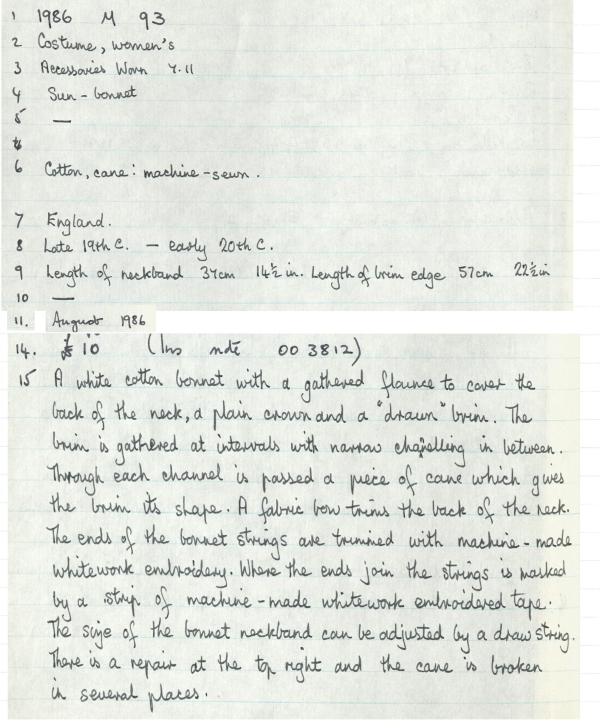 1 1986 M 93
2 Costume, women's
3 Accessories Worn 4.11
4 Sun-bonnet
5 —
6 Cotton, cane: machine-sewn.
7 England.
8 Late 19th C. — early 20th C.
9 Length of neckband 37cm 14½ in. Length of brim edge 57cm 22½in
10 —
11. August 1986
14. £10 (Ins note 00 3812)
15 A white cotton bonnet with a gathered flounce to cover the
back of the neck, a plain crown and a "drawn" brim. The
brim is gathered at intervals with narrow channelling in between.
Through each channel is passed a piece of cane which gives
the brim its shape. A fabric bow trims the back of the neck.
The ends of the bonnet strings are trimmed with machine-made
whitework embroidery. Where the ends join the strings is masked
by a strip of machine-made whitework embroidered tape.
The size of the bonnet neckband can be adjusted by a drawstring.
There is a repair at the top right and the cane is broken
in several places.